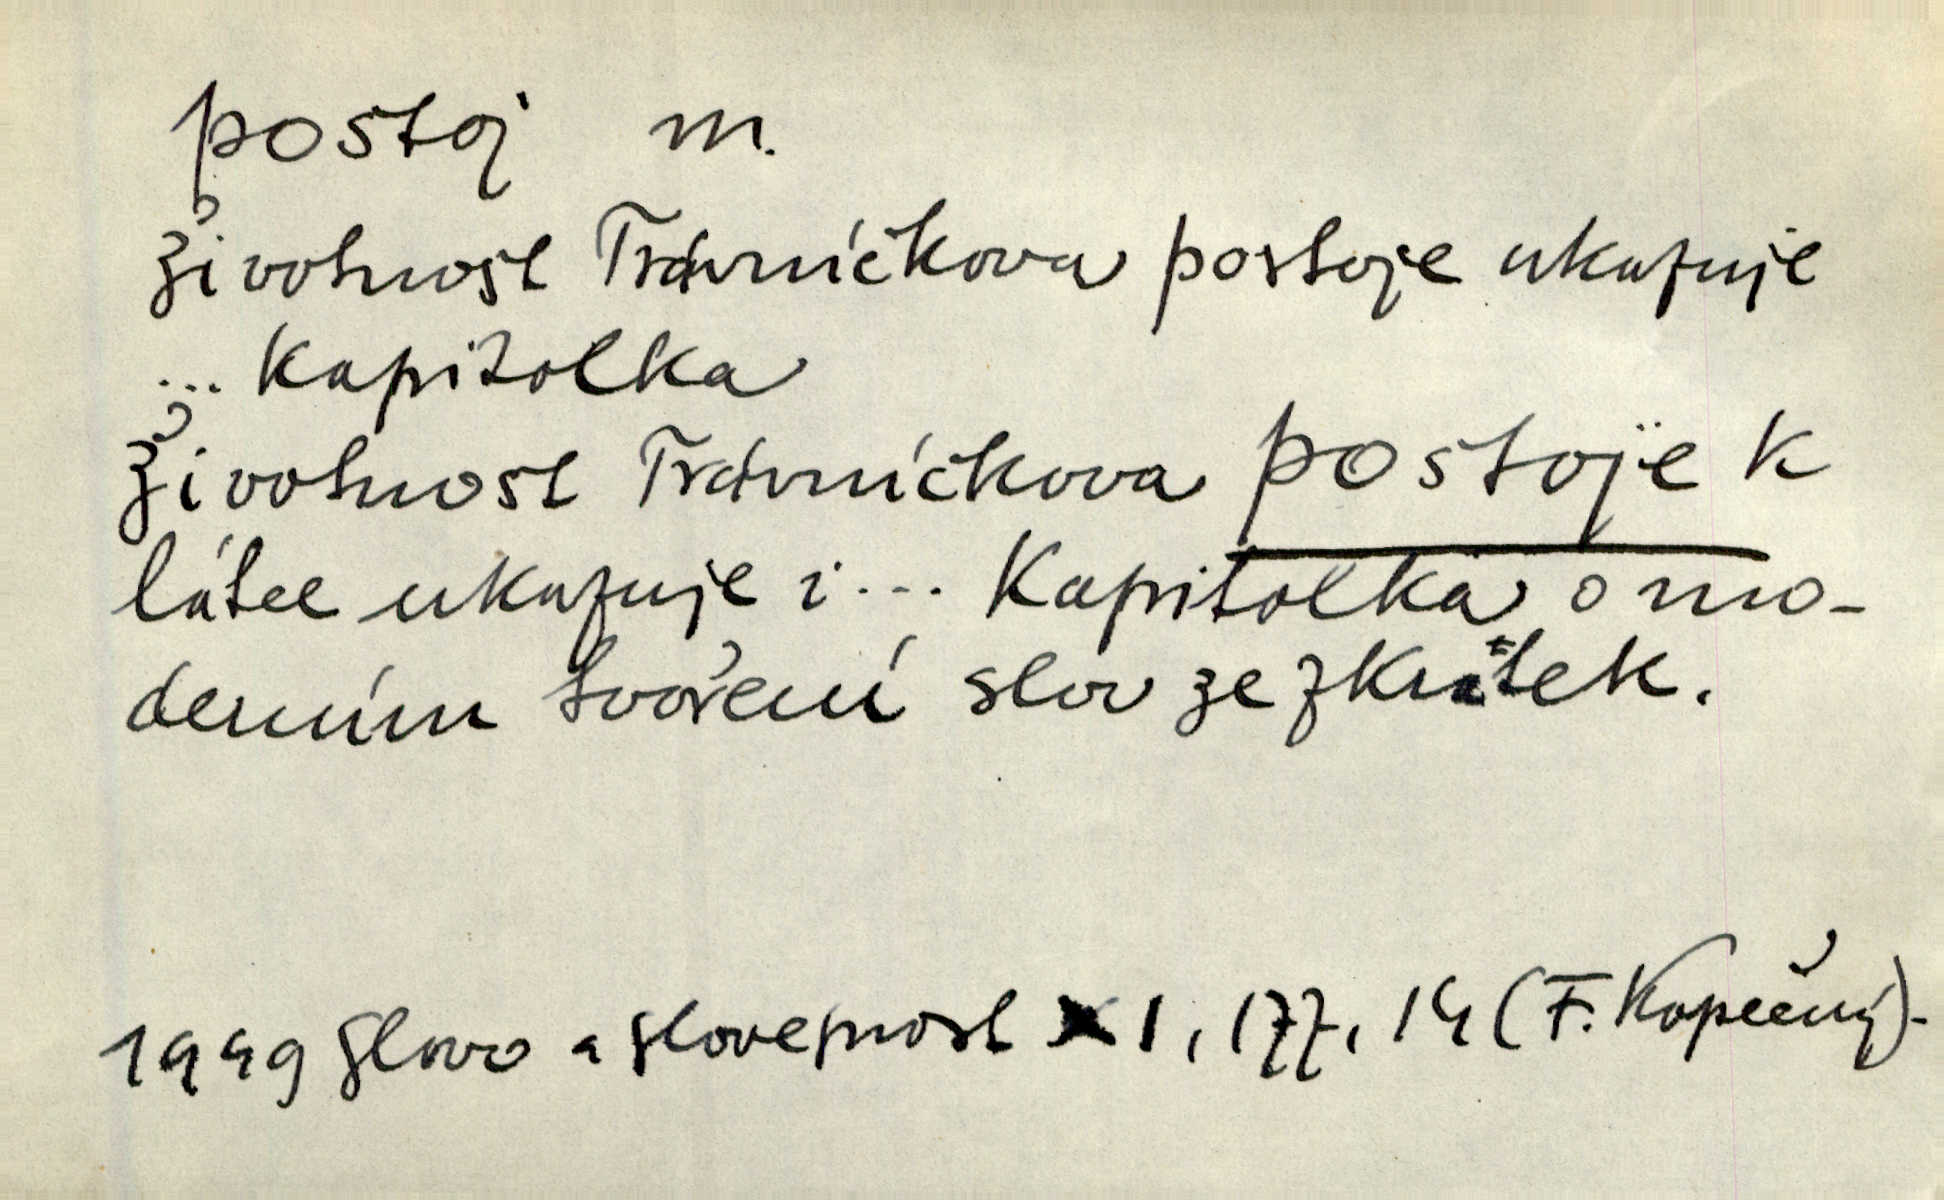 postoj m.
životnost Trávníčkova postoje ukazuje
... kapitolka
životnost Trávníčkova postoje k
látce ukazuje i ... kapitolka o mo-
derním tvoření slov ze zkratek.
1949 Slovo a slovesnost XI, 177, 14 (F. Kopečný).